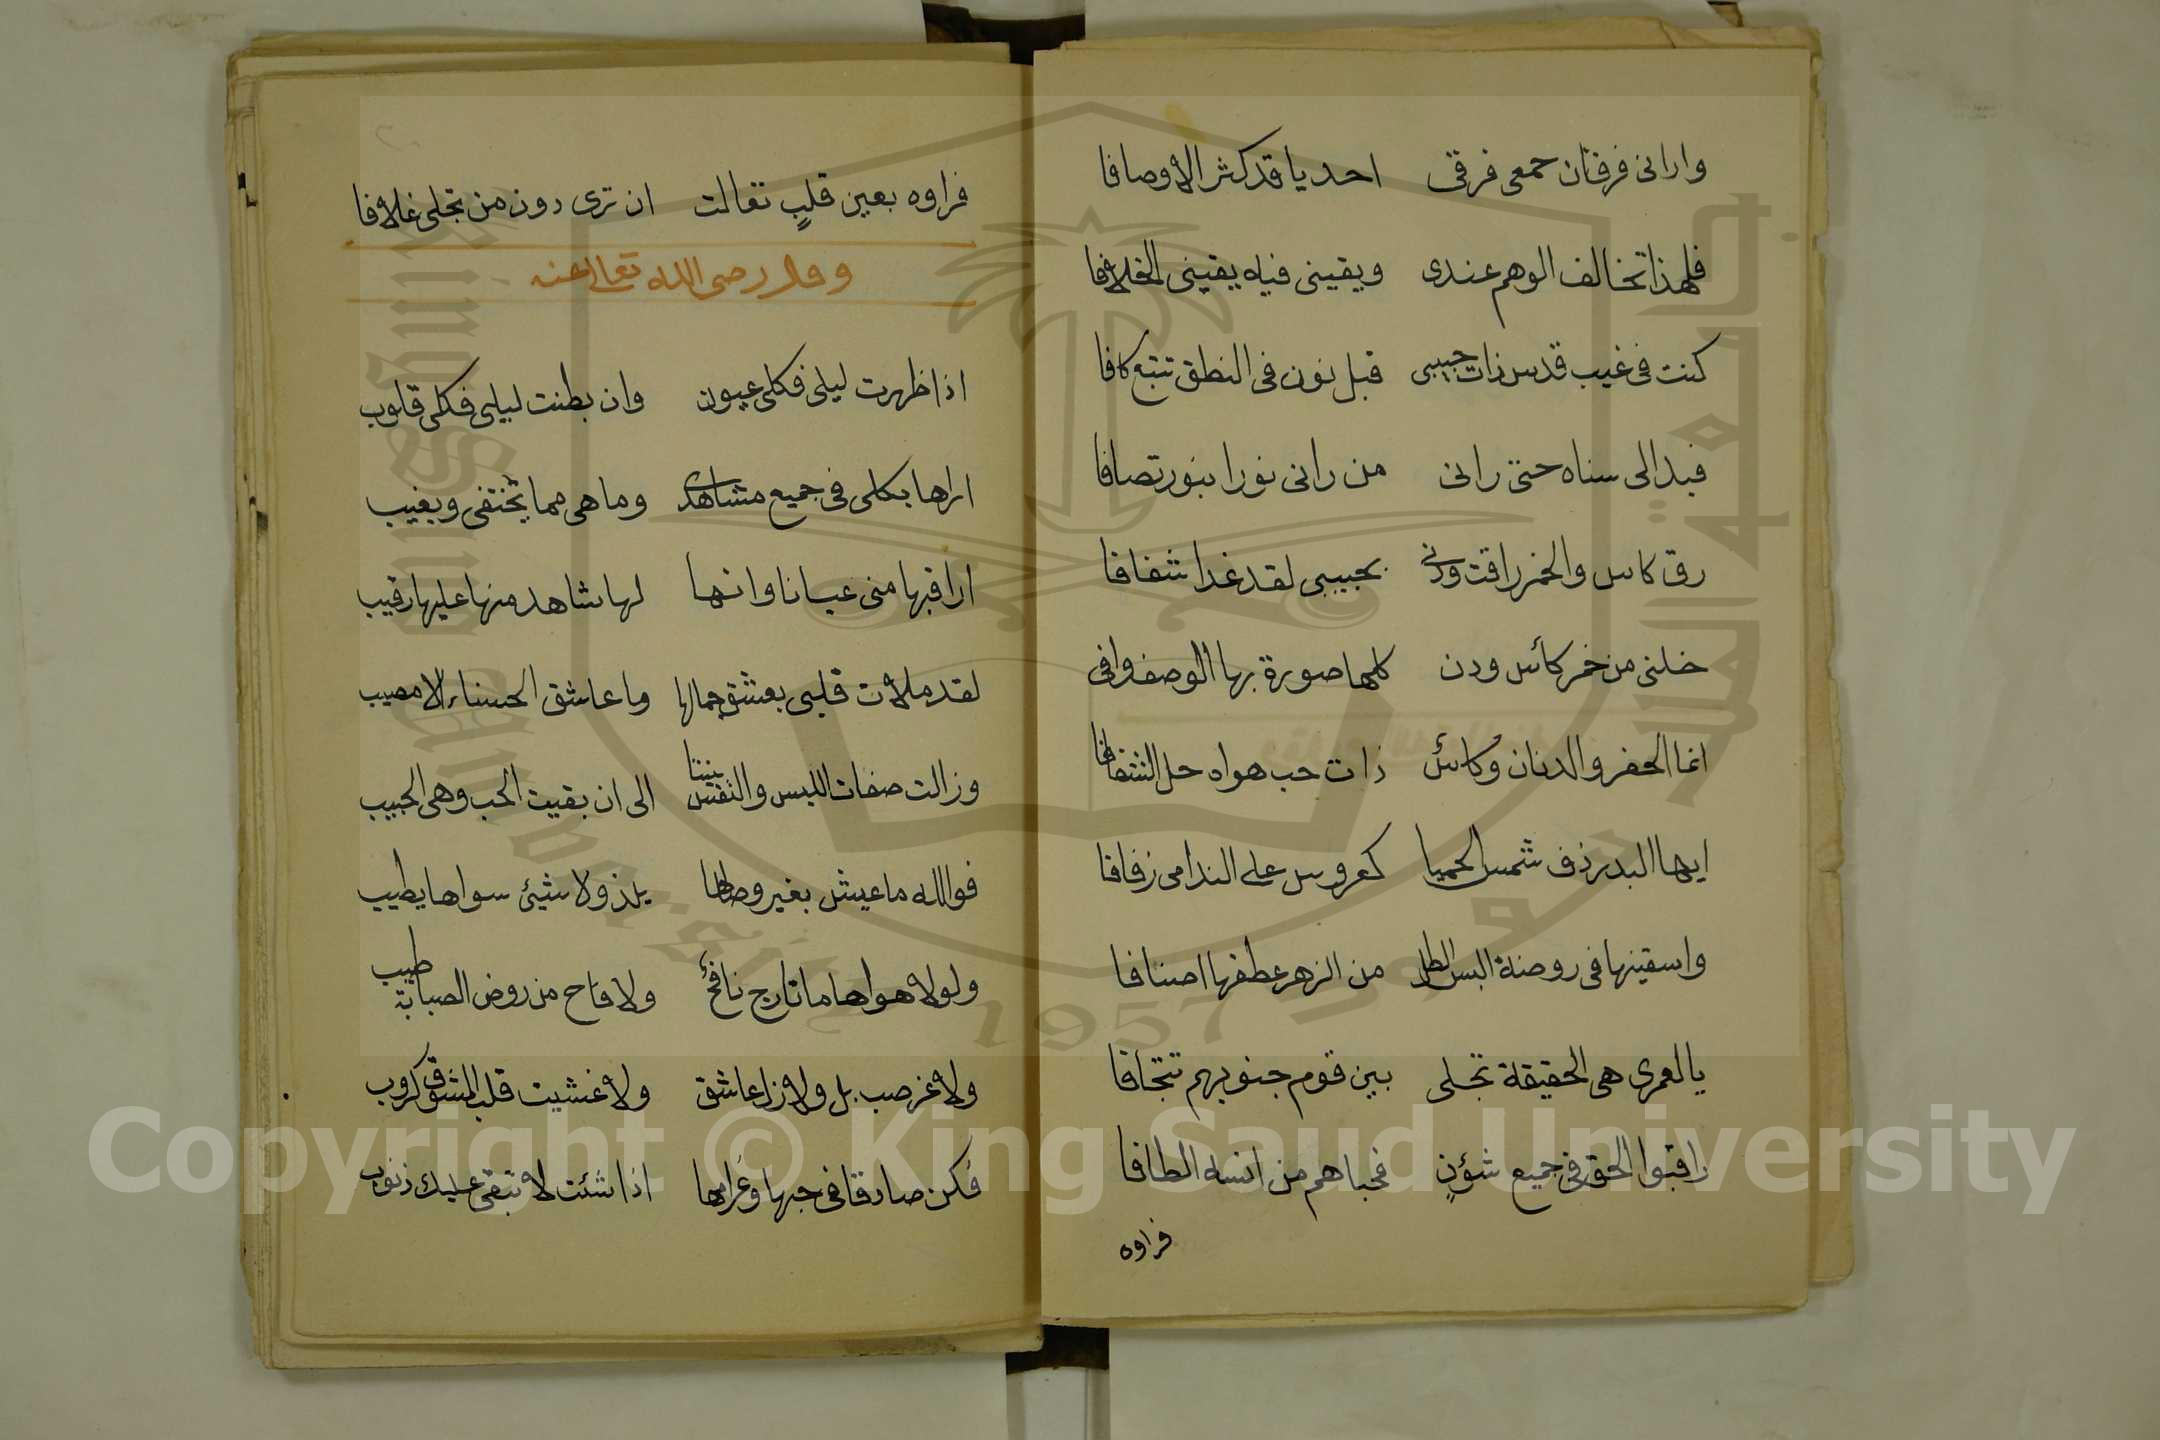 واراني فرقان جمعي فرقي احديا قد كثر الاوصافا
فلهذا تخالف الوهم عندي ويقيني فيه يقيني الخلافا
كنت في غيب قدس ذات حبيبي قبل نون في النطق تتبع كافا
فبدا لي سناه حتى راني من راني نورا بنور تصافا
رق كاس والخمر راقت ودني بحبيبي لقد غدا شفافا
خلني من خمر كائس ودن كلها صورة بها الوصف وافى
انما الخمر والدنان وكائس ذات حب هواه حل الشغافا
ايها البدر زف شمس الحميا كعروس على الندامى زفافا
واسقينها في روضة البس الطل من الزهر عطفها اصنافا
يا لعمري هي الحقيقة تجلى بين قوم جنوبهم تتجافا
راقبوا الحق في جميع شؤنٍ فحباهم من انسه الطافا
فراوه
فراوه بعين قلبٍ تعالت ان ترى دون من تجلى غلافا
وقال رضي الله تعالى عنه
اذا ظهرت ليلى فكلي عيون وان بطنت ليلى فكلي قلوب
اراها بكلي في جميع مشاهدي وما هي مما يختفي ويغيب
اراقبها مني عيانا وانها لها شاهد منها عليها رقيب
لقد ملات قلبي بعشق جمالها وما عاشق الحسناء الا مصيب
وزالت صفات اللبس والنفس بيننا الى ان بقيت الحب وهي الحبيب
فوالله ما عيش بغير وصالها يلذ ولا شيئ سواها يطيب
ولولا هواها ما تارج نافح ولا فاح من روض الصبابة طيب
ولا غر صب بل ولا زل عاشق ولا غشيت قلب المشوق كروب
فكن صادقا في حبها وغرامها اذا شئت لا تبقى عليك ذنوب
Copyright © King Saud University
جامعة الملك سعود
King Saud University
1957